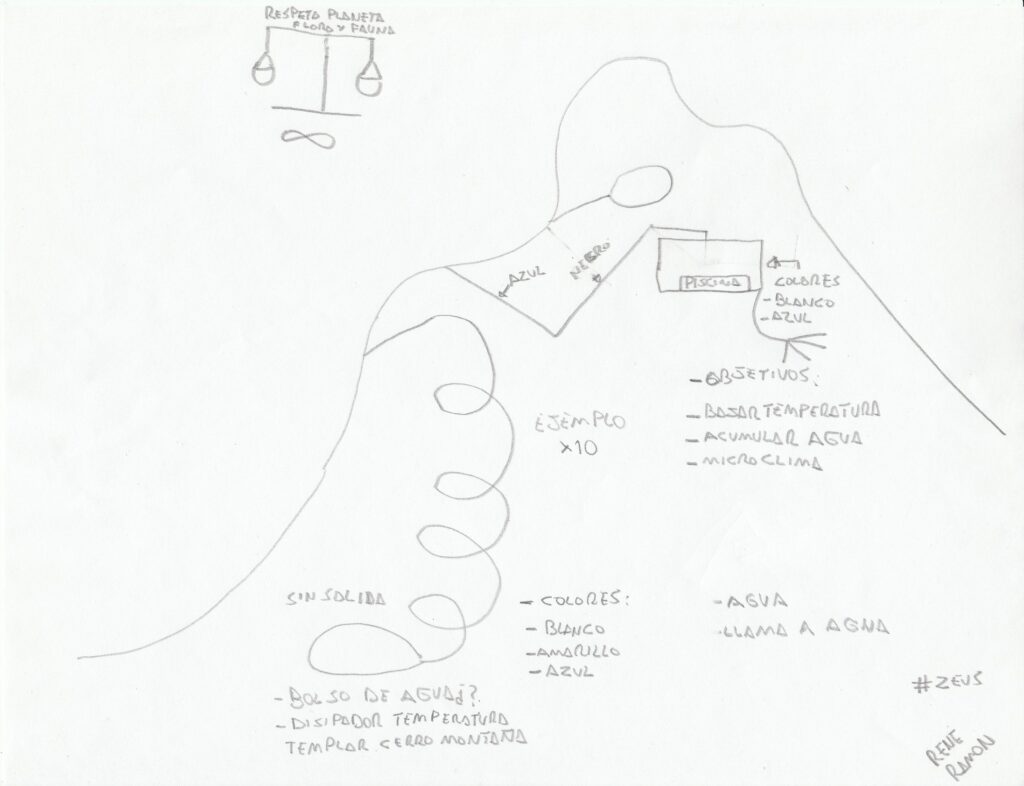 RESPETA PLANETA
FLORA Y FAUNA
AZUL
NEGRO
PISCINA
COLORES
- BLANCO
- AZUL
- OBJETIVOS:
- BAJAR TEMPERATURA
- ACUMULAR AGUA
- MICROCLIMA
EJEMPLO
X10
SIN SALIDA
- COLORES:
- BLANCO
- AMARILLO
- AZUL
- AGUA
- LLAMA A AGUA
- BOLSO DE AGUA¿?
- DISIPADOR TEMPERATURA
TEMPLAR CERRO MONTAÑA
#ZEUS
RENE
RAMON